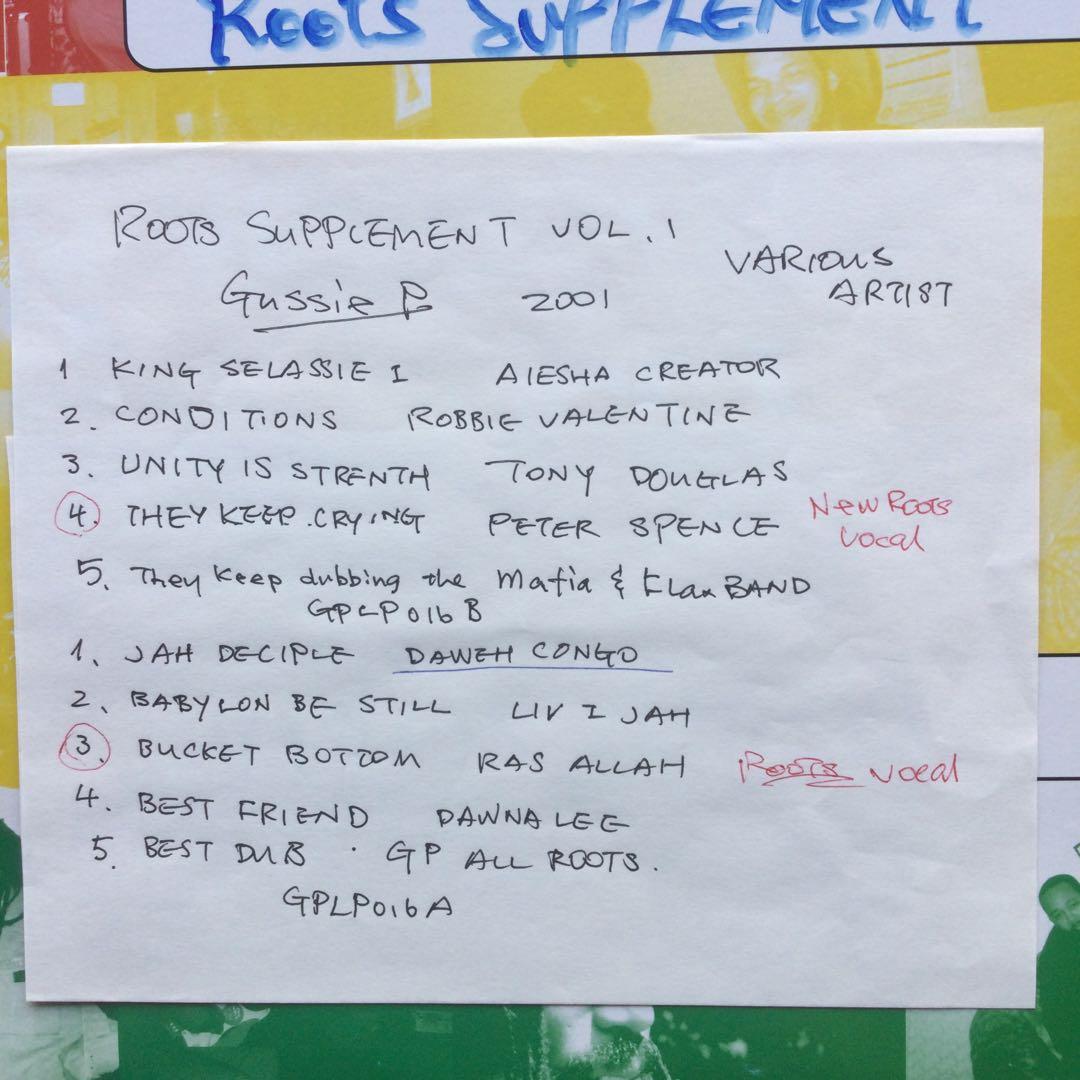 ROOTS SUPPLEMENT
ROOTS SUPPLEMENT VOL. 1
VARIOUS
ARTIST
Gussie P 2001
1 KING SELASSIE I AIESHA CREATOR
2. CONDITIONS ROBBIE VALENTINE
3. UNITY IS STRENTH TONY DOUGLAS
4. THEY KEEP CRYING PETER SPENCE
New Roots
vocal
5. They Keep dubbing the Mafia & Flax BAND
GPLP016B
1. JAH DECIPLE DAWEH CONGO
2. BABYLON BE STILL LIV I JAH
3. BUCKET BOTTOM RAS ALLAH Roots vocal
4. BEST FRIEND DAWNA LEE
5. BEST DUB . GP ALL ROOTS.
GPLP016A